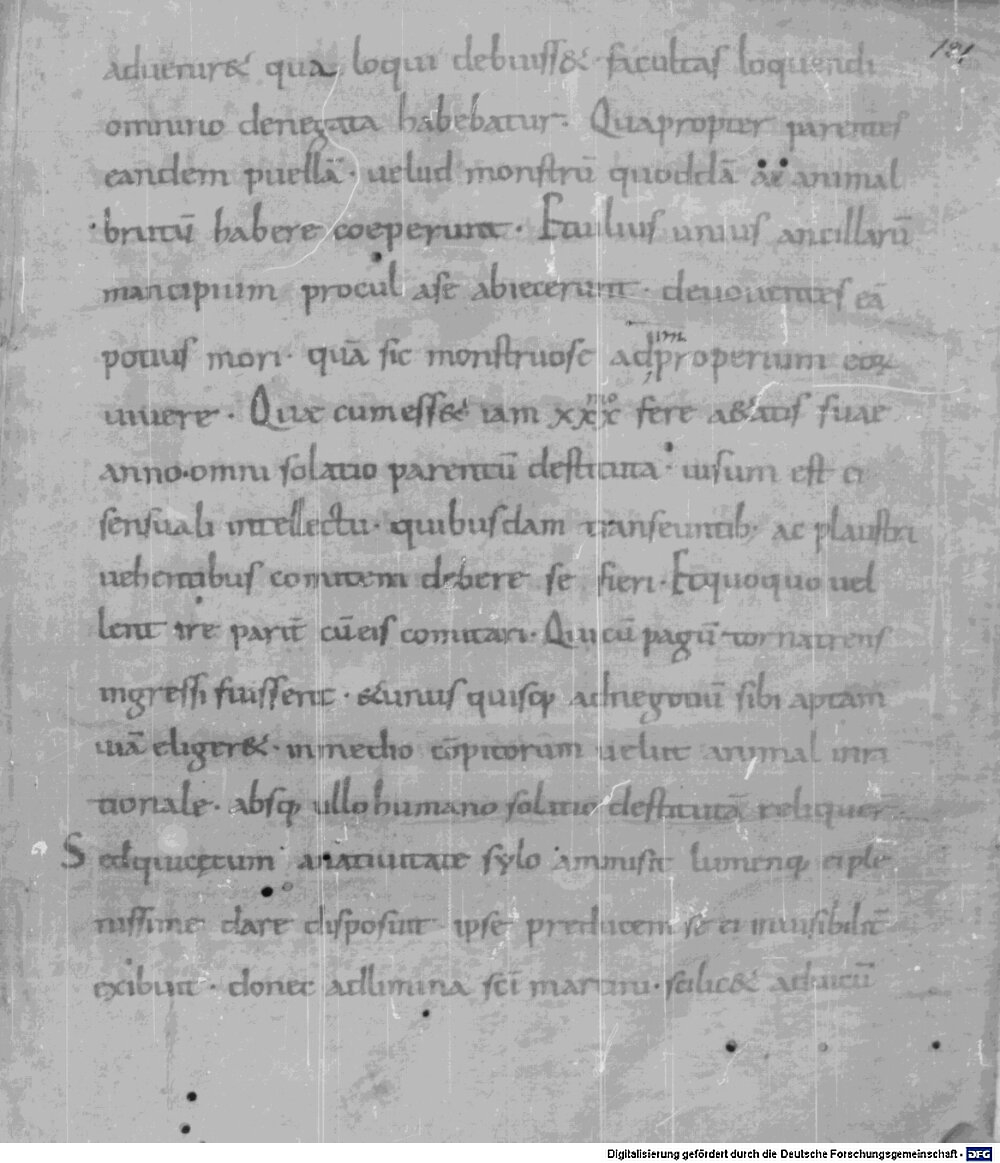 191
aduenir& qua loqui debuiss& · facultas loquendi
omnino denegata habebatur · Quapropter parentes
eandem puellā · uelud monstrū quoddā ac animal
· brutū habere coeperunt · Et uilius unius ancillarū
mancipium procul a se abiecerunt · deuouentes eā
potius mori · quā sic monstruose ad properium eoꝝ
uiuere · Quae cum ess& iam xxx mo fere a&atis suae
anno · omni solatio parentū destituta · uisum est ei
sensuali intellectu · quibusdam transeuntib; ac plaustri
uehentibus comitem debere se fieri · Et quoquo uel
lent ire parit̄ cū eis comitari · Qui cū pagū tornatrens
ingressi fuissent · & unus quisq; ad negotiū sibi aptam
uiā eliger& · in medio cōpitorum uelut animal inra
tionale · absq; ullo humano solatio destitutā reliquer̄
Sed qui cętum a natiuitate sylo ammisit lumenq; ei ple
nissime dare disposuit ipse preducem se ei inuisibilit̄
exibuit · donec ad limina sc̄i martini · scilic& ad uicū
Digitalisierung gefördert durch die Deutsche Forschungsgemeinschaft - DFG